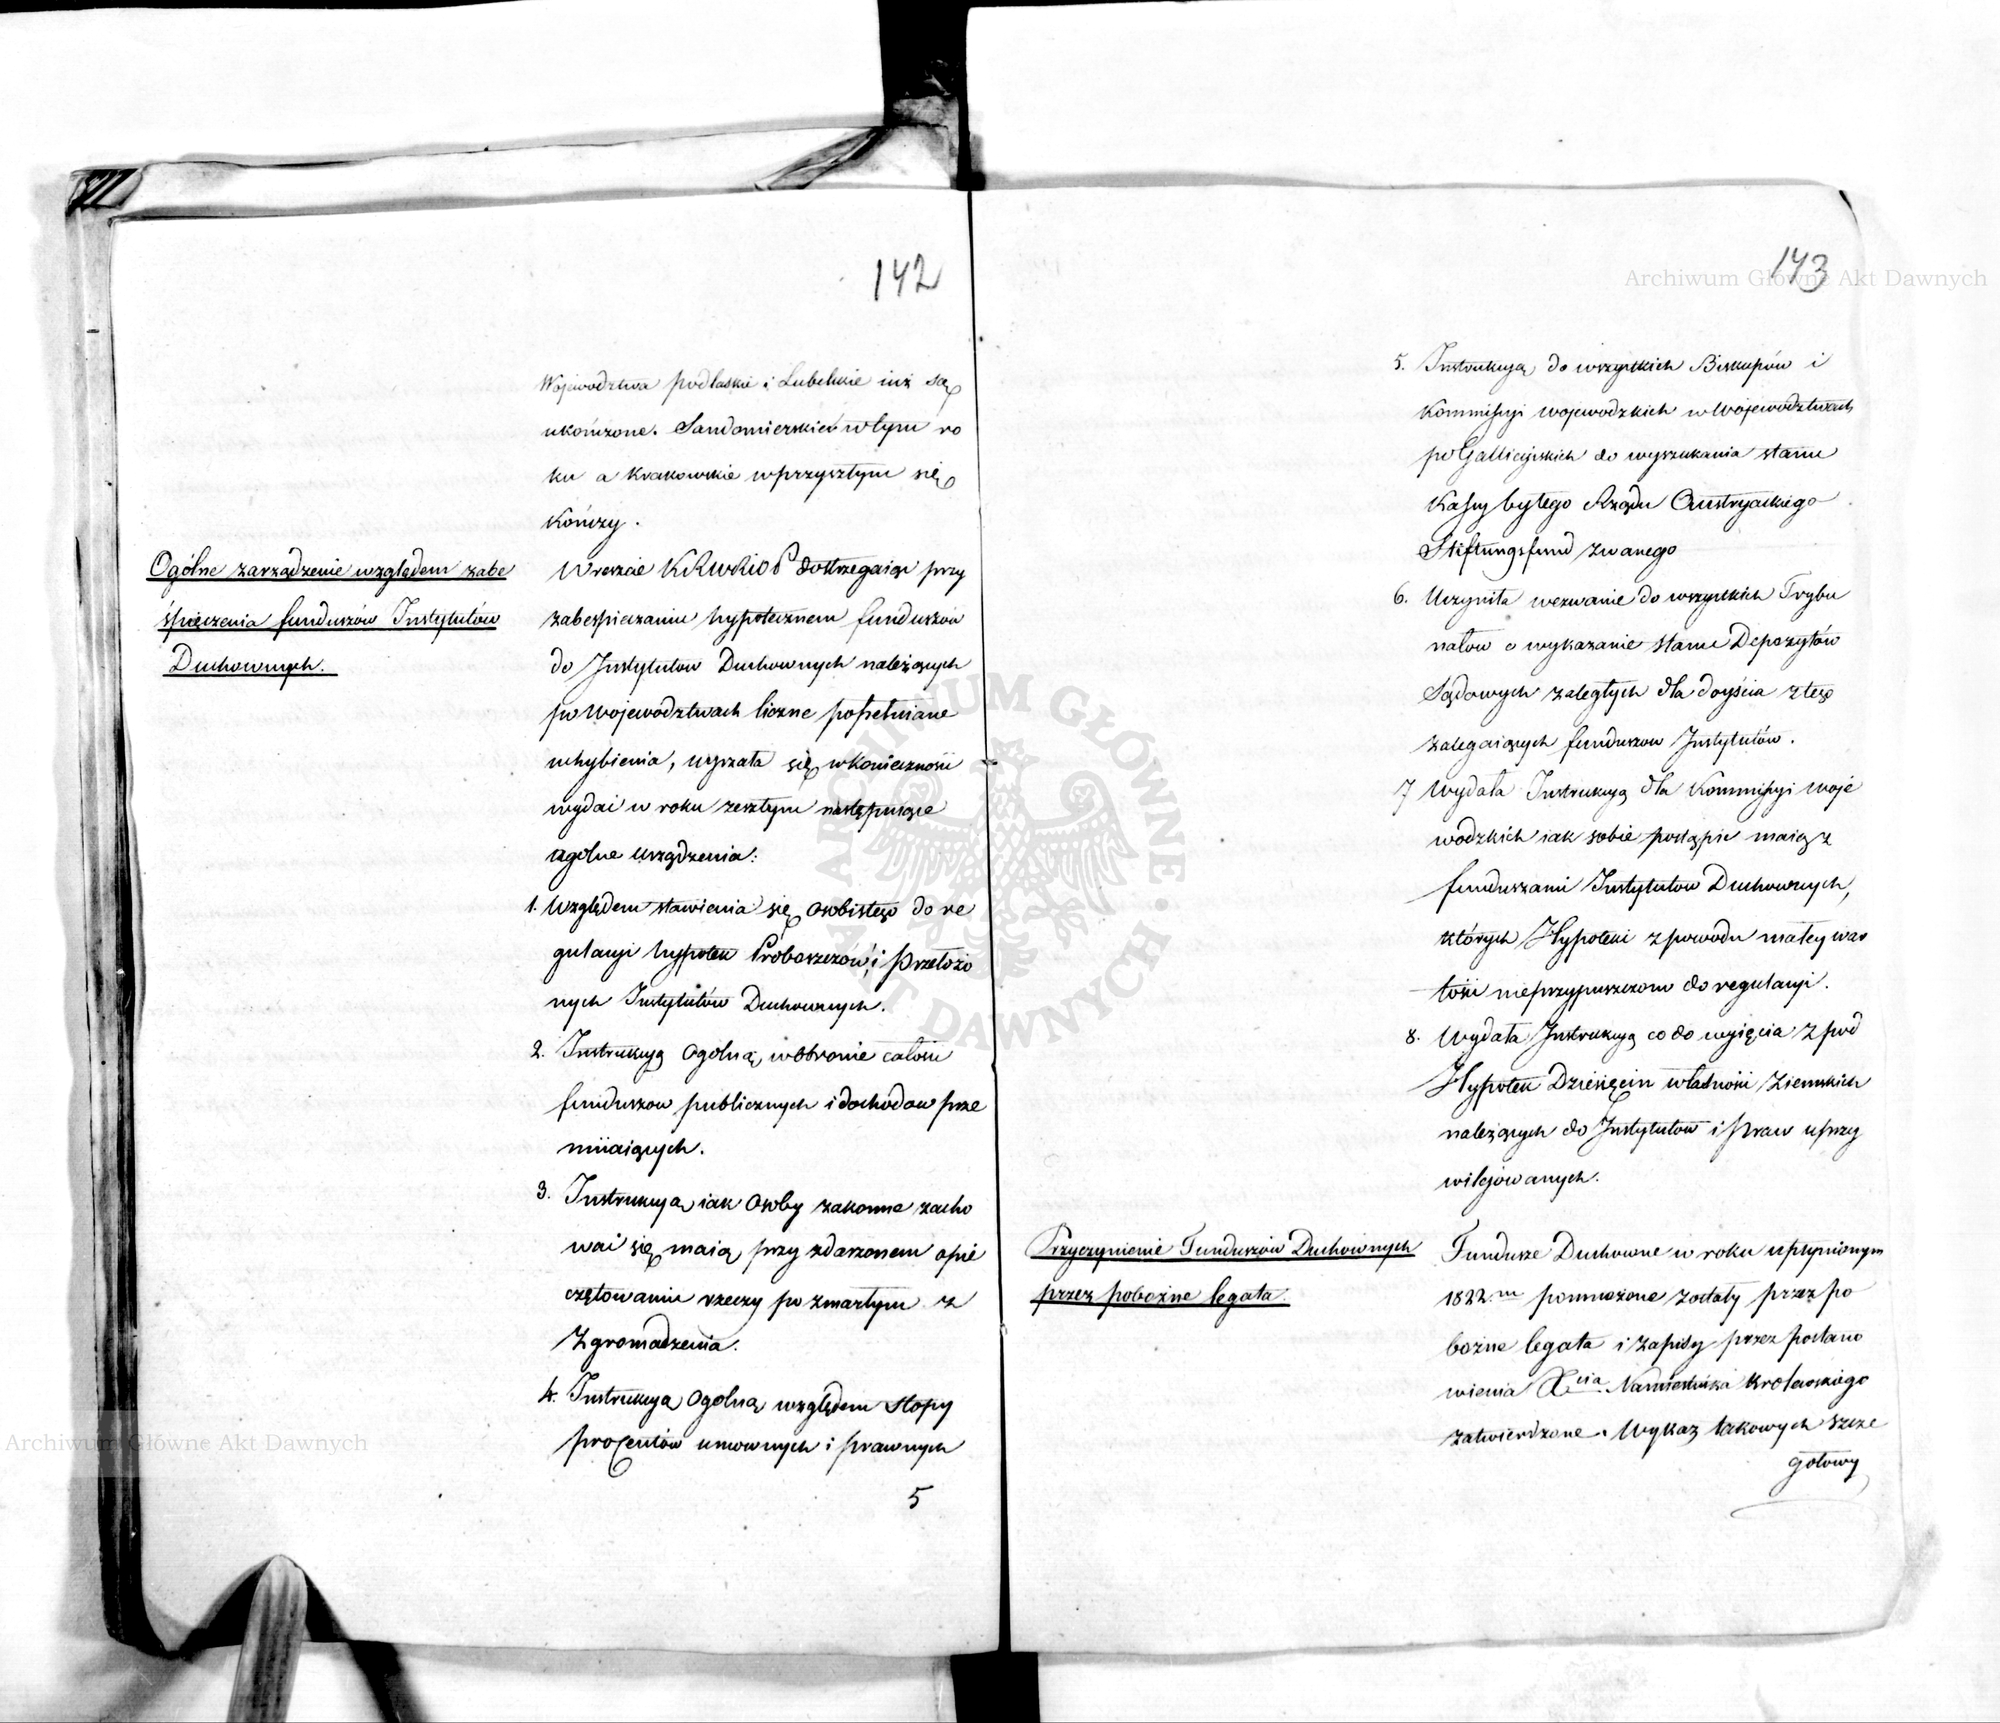 142
Wojewodztwa podlaskie i Lubelskie iuż są
ukończone. Sandomierskie w tym ro
ku a Krakowskie w przyszłym się
kończy.
Ogólne zarządzenie względem zabe
śpieczenia funduszów Instytutów
Duchownych.
Wreszcie KRWRiOP dostrzegaiąc przy
zabespieczaniu hypotecznem funduszów
do Instytutow Duchownych należących
po Wojewodztwach liczne popełniane
uchybienia, uyrzała się w konieczności
wydać w roku zeszłym następuiące
ogolne urządzenia:
1. Względem stawienia się osobistego do re
gulacyi hypotek Próboszczów i Przełożo
nych Instytutów Duchownych.
2. Instrukcyą Ogolną w obronie całości
funduszow publicznych i dochodow prze
miiaiących.
3. Instrukcyą iak Osoby zakonne zacho
wać się maią przy zdarzonem opie
czętowaniu rzeczy po zmarłym z
Zgromadzenia.
4. Instrukcyą Ogolną względem stopy
procentów umownych i prawnych
5
143
5. Instrukcyą do wszystkich Biskupów i
Kommissyi wojewodzkich w Wojewodztwach
po Gallicyiskich do wyszukania stanu
Kassy byłego Rządu Austryackiego
Stiftungsfund zwanego
6. Uczyniła wezwanie do wszystkich Trybu
nałow o wykazanie stanu Depozytów
Sądowych zaległych dla doyścia z tego
zalegaiących funduszow Instytutów.
7 Wydała Instrukcyą dla Kommissyi woje
wodzkich iak sobie postąpić maią z
funduszami Instytutow Duchownych,
których Hypoteki z powodu małey war
tości nieprzypuszczono do regulacyi.
8. Wydała Instrukcyą co do wyięcia z pod
Hypotek Dziesięcin własności Ziemskich
należących do Instytutow i Praw uprzy
wilejowanych.
Przyczynienie Funduszów Duchownych
przez pobożne legata.
Fundusze Duchowne w roku upłynionym
1822.m pomnożone zostały przez po
bożne legata i zapisy przez postano
wienia Xcia Namiestnika Krolewskiego
zatwierdzone. Wykaz takowych szcze
gołowy
Archiwum Główne Akt Dawnych
Archiwum Główne Akt Dawnych
ARCHIWUM GŁÓWNE AKT DAWNYCH